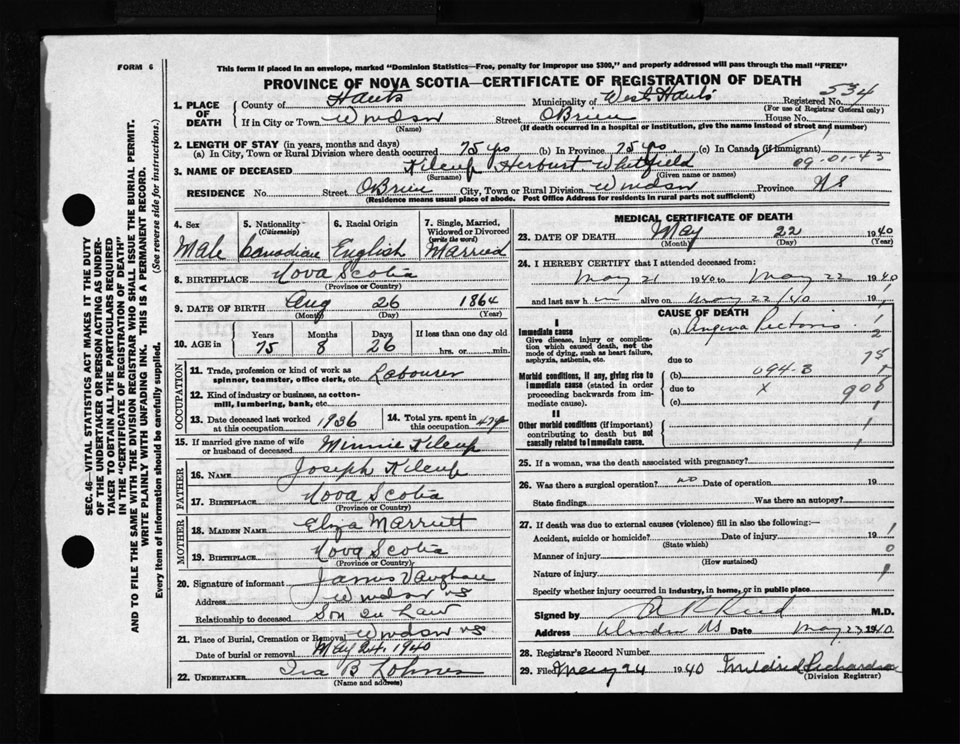 FORM 6
This form if placed in an envelope, marked "Dominion Statistics—Free, penalty for improper use $300," and properly addressed will pass through the mail "FREE"
PROVINCE OF NOVA SCOTIA—CERTIFICATE OF REGISTRATION OF DEATH
SEC. 46—VITAL STATISTICS ACT MAKES IT THE DUTY
OF THE UNDERTAKER OR PERSON ACTING AS UNDER-
TAKER TO OBTAIN ALL THE PARTICULARS REQUIRED
IN THE "CERTIFICATE OF REGISTRATION OF DEATH"
AND TO FILE THE SAME WITH THE DIVISION REGISTRAR WHO SHALL ISSUE THE BURIAL PERMIT.
WRITE PLAINLY WITH UNFADING INK. THIS IS A PERMANENT RECORD.
Every item of information should be carefully supplied. (See reverse side for instructions.)
1. PLACE OF DEATH
County of Hants Municipality of West Hants Registered No. 534
(For use of Registrar General only)
If in City or Town Windsor Street OBrien House No.
(Name) (If death occurred in a hospital or institution, give the name instead of street and number)
2. LENGTH OF STAY (in years, months and days)
(a) In City, Town or Rural Division where death occurred 75 yrs (b) In Province 75 yrs. (c) In Canada (if immigrant)
09-01-43
3. NAME OF DECEASED Kilcup Herbert Whitfield
(Surname) (Given name or names)
RESIDENCE No. Street OBrien City, Town or Rural Division Windsor Province NS
(Residence means usual place of abode. Post Office Address for residents in rural parts not sufficient)
4. Sex Male
5. Nationality (Citizenship) Canadian
6. Racial Origin English
7. Single, Married, Widowed or Divorced (write the word) Married
8. BIRTHPLACE Nova Scotia
(Province or Country)
9. DATE OF BIRTH Aug 26 1864
(Month) (Day) (Year)
10. AGE in Years 75 Months 8 Days 26 If less than one day old
hrs. or min.
OCCUPATION
11. Trade, profession or kind of work as spinner, teamster, office clerk, etc. Labourer
12. Kind of industry or business, as cotton-mill, lumbering, bank, etc.
13. Date deceased last worked at this occupation 1936
14. Total yrs. spent in this occupation
15. If married give name of wife or husband of deceased Minnie Kilcup
FATHER
16. NAME Joseph Kilcup
17. BIRTHPLACE Nova Scotia
(Province or Country)
MOTHER
18. MAIDEN NAME Eliza Marriett
19. BIRTHPLACE Nova Scotia
(Province or Country)
20. Signature of informant James Vaughan
Address Windsor NS
Relationship to deceased Son in Law
21. Place of Burial, Cremation or Removal Windsor NS
Date of burial or removal May 24, 1940
22. UNDERTAKER Ira B
(Name and address)
MEDICAL CERTIFICATE OF DEATH
23. DATE OF DEATH May 22 1940
(Month) (Day) (Year)
24. I HEREBY CERTIFY that I attended deceased from:
May 21 1940 to May 22 1940
and last saw him alive on May 22/40 19
CAUSE OF DEATH
I
Immediate cause
Give disease, injury or complication which caused death, not the mode of dying, such as heart failure, asphyxia, asthenia, etc.
(a) Angina Pectoris
due to
Morbid conditions, if any, giving rise to immediate cause (stated in order proceeding backwards from immediate cause).
(b) 094-B
due to X
(c)
1
2
75
908
II
Other morbid conditions (if important) contributing to death but not causally related to immediate cause.
1
1
1
25. If a woman, was the death associated with pregnancy?
26. Was there a surgical operation? no Date of operation 19
State findings Was there an autopsy?
27. If death was due to external causes (violence) fill in also the following:—
Accident, suicide or homicide? Date of injury 19 1
(State which)
Manner of injury 0
(How sustained)
Nature of injury 1
Specify whether injury occurred in industry, in home, or in public place
Signed by Reid M.D.
Address Windsor NS Date May 23 1940
28. Registrar's Record Number
29. Filed May 24 1940 Mildred Richardson
(Division Registrar)